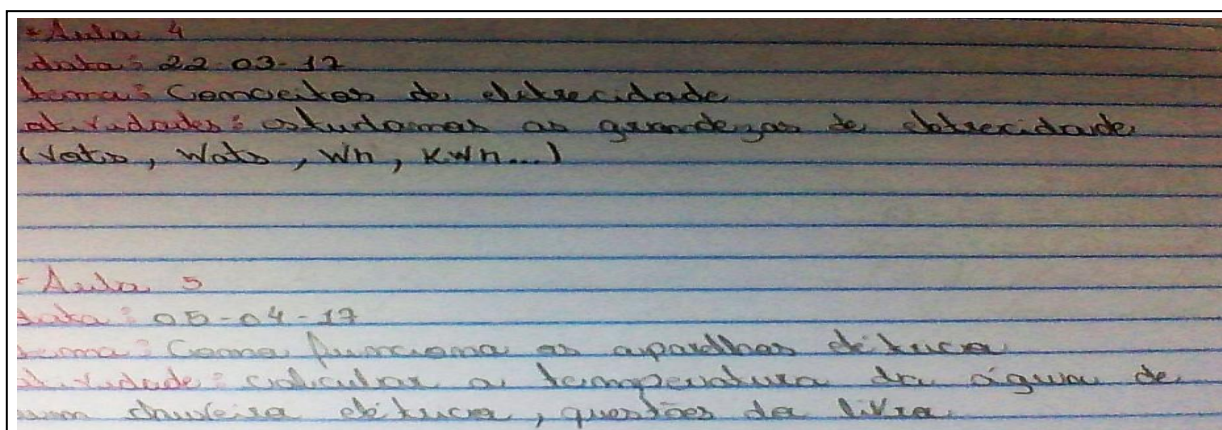 *Aula 4
data: 22-03-17
tema: Conceitos de eletrecidade
atividades: estudamos as grandezas de eletrecidade
(Vots, Wats, Wh, KWh...)
-Aula 5
data: 05-04-17
tema: Como funciona os aparelhos elétrico
atividade: calcular a temperatura da água de
um chuveiro elétrico, questões do livro.